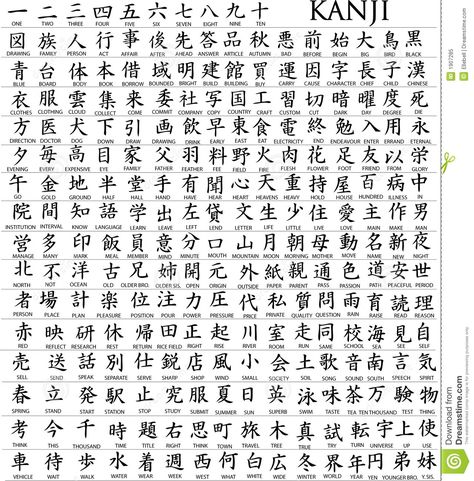 一 二 三 四 五 六 七 八 九 十 KANJI
ONE TWO THREE FOUR FIVE SIX SEVEN EIGHT NINE TEN
図 族 人 行 事 後 先 答 品 秋 悪 前 始 大 鳥 黒
DRAWING FAMILY PERSON ACT AFFAIR AFTER AHEAD ANSWER ARTICLE AUTUMN BAD BEFORE BEGIN BIG BIRD BLACK
青 台 体 本 借 域 明 建 館 買 運 因 字 長 子 漢
BLUE BOARD BODY BOOK BORROW BOUNDED BRIGHT BUILD BUILDING BUY CARRY CAUSE CHARACTER CHIEF CHILD CHINESE
衣 服 雲 集 来 委 社 写 国 工 習 切 暗 曜 度 死
CLOTHES CLOTHING CLOUD COLLECT COME COMMIT COMPANY COPY COUNTRY CRAFT CUSTOM CUT DARK DAY DEGREE DIE
方 医 犬 下 引 画 飲 早 東 食 電 終 勉 入 用 永
DIRECTION DOCTOR DOG DOWN DRAW DRAWING DRINK EARLY EAST EAT ELECTRICITY END ENDEAVOUR ENTER ERRAND ETERNAL
夕 毎 高 目 家 父 羽 料 野 火 肉 花 足 友 以 栄
EVENING EVERY EXPENSIVE EYE FAMILY FATHER FEATHER FEE FIELD FIRE FLESH FLOWER FOOT FRIEND FROM GLORY
午 金 地 半 堂 手 有 聞 心 天 重 持 屋 百 病 中
GO GOLD GROUND HALF HALL HAND HAVE HEAR HEART HEAVENS HEAVY HOLD HOUSE HUNDRED ILLNESS IN
院 間 知 語 学 出 左 貸 文 生 少 住 愛 主 作 男
INSTITUTION INTERVAL KNOW LANGUAGE LEARN LEAVE LEFT LEND LETTER LIFE LITTLE LIVE LOVE MAIN MAKE MAN
営 多 印 飯 員 意 分 口 山 月 朝 母 動 名 新 夜
MANAGE MANY MARK MEAL MEMBER MIND MINUTE MOUTH MOUNTAIN MOON MORNING MOTHER MOVE NAME NEW NIGHT
北 不 洋 古 兄 姉 開 元 外 紙 親 通 色 道 安 世
NORTH NOT OCEAN OLD OLDER BRO. OLDER SIS. OPEN ORIGIN OUTSIDE PAPER PARENT PASS PASSION PATH PEACEFUL PERIOD
者 場 計 楽 位 注 力 圧 代 私 質 問 雨 育 読 理
PERSON PLACE PLAN PLEASURE POSITION POUR POWER PRESSURE PRICE PRIVATE QUALITY QUESTION RAIN RAISE READ REASON
赤 映 研 休 帰 田 正 起 川 室 走 同 校 海 見 自
RED REFLECT RESEARCH REST RETURN RICE FIELD RIGHT RISE RIVER ROOM RUN SAME SCHOOL SEA SEE SELF
売 送 話 別 仕 鋭 店 風 小 会 土 歌 音 南 言 気
SELL SEND SPEAK SEPARATE SERVE SHARP SHOP WIND SMALL SOCIETY SOIL SONG SOUND SOUTH SPEECH SPIRIT
春 立 発 駅 止 究 服 夏 日 英 泳 味 茶 万 験 物
SPRING STAND START STATION STOP STUDY SUBMIT SUMMER SUN SUPERB SWIM TASTE TEA TEN THOUSAND TEST THING
考 今 千 時 題 右 思 町 旅 木 真 試 転 宇 上 使
THINK THIS THOUSAND TIME TITLE RIGHT THINK TOWN TRAVEL TREE TRUE TRY TURN UNIVERSE UP USE
車 待 歩 水 着 週 西 何 白 広 冬 界 年 円 弟 妹
VEHICLE WAIT WALK WATER WEAR WEEK WEST WHAT WHITE WIDE WINTER WORLD YEAR YEN YOUNGER BRO. Y.SIS.
Download from
Dreamstime.com